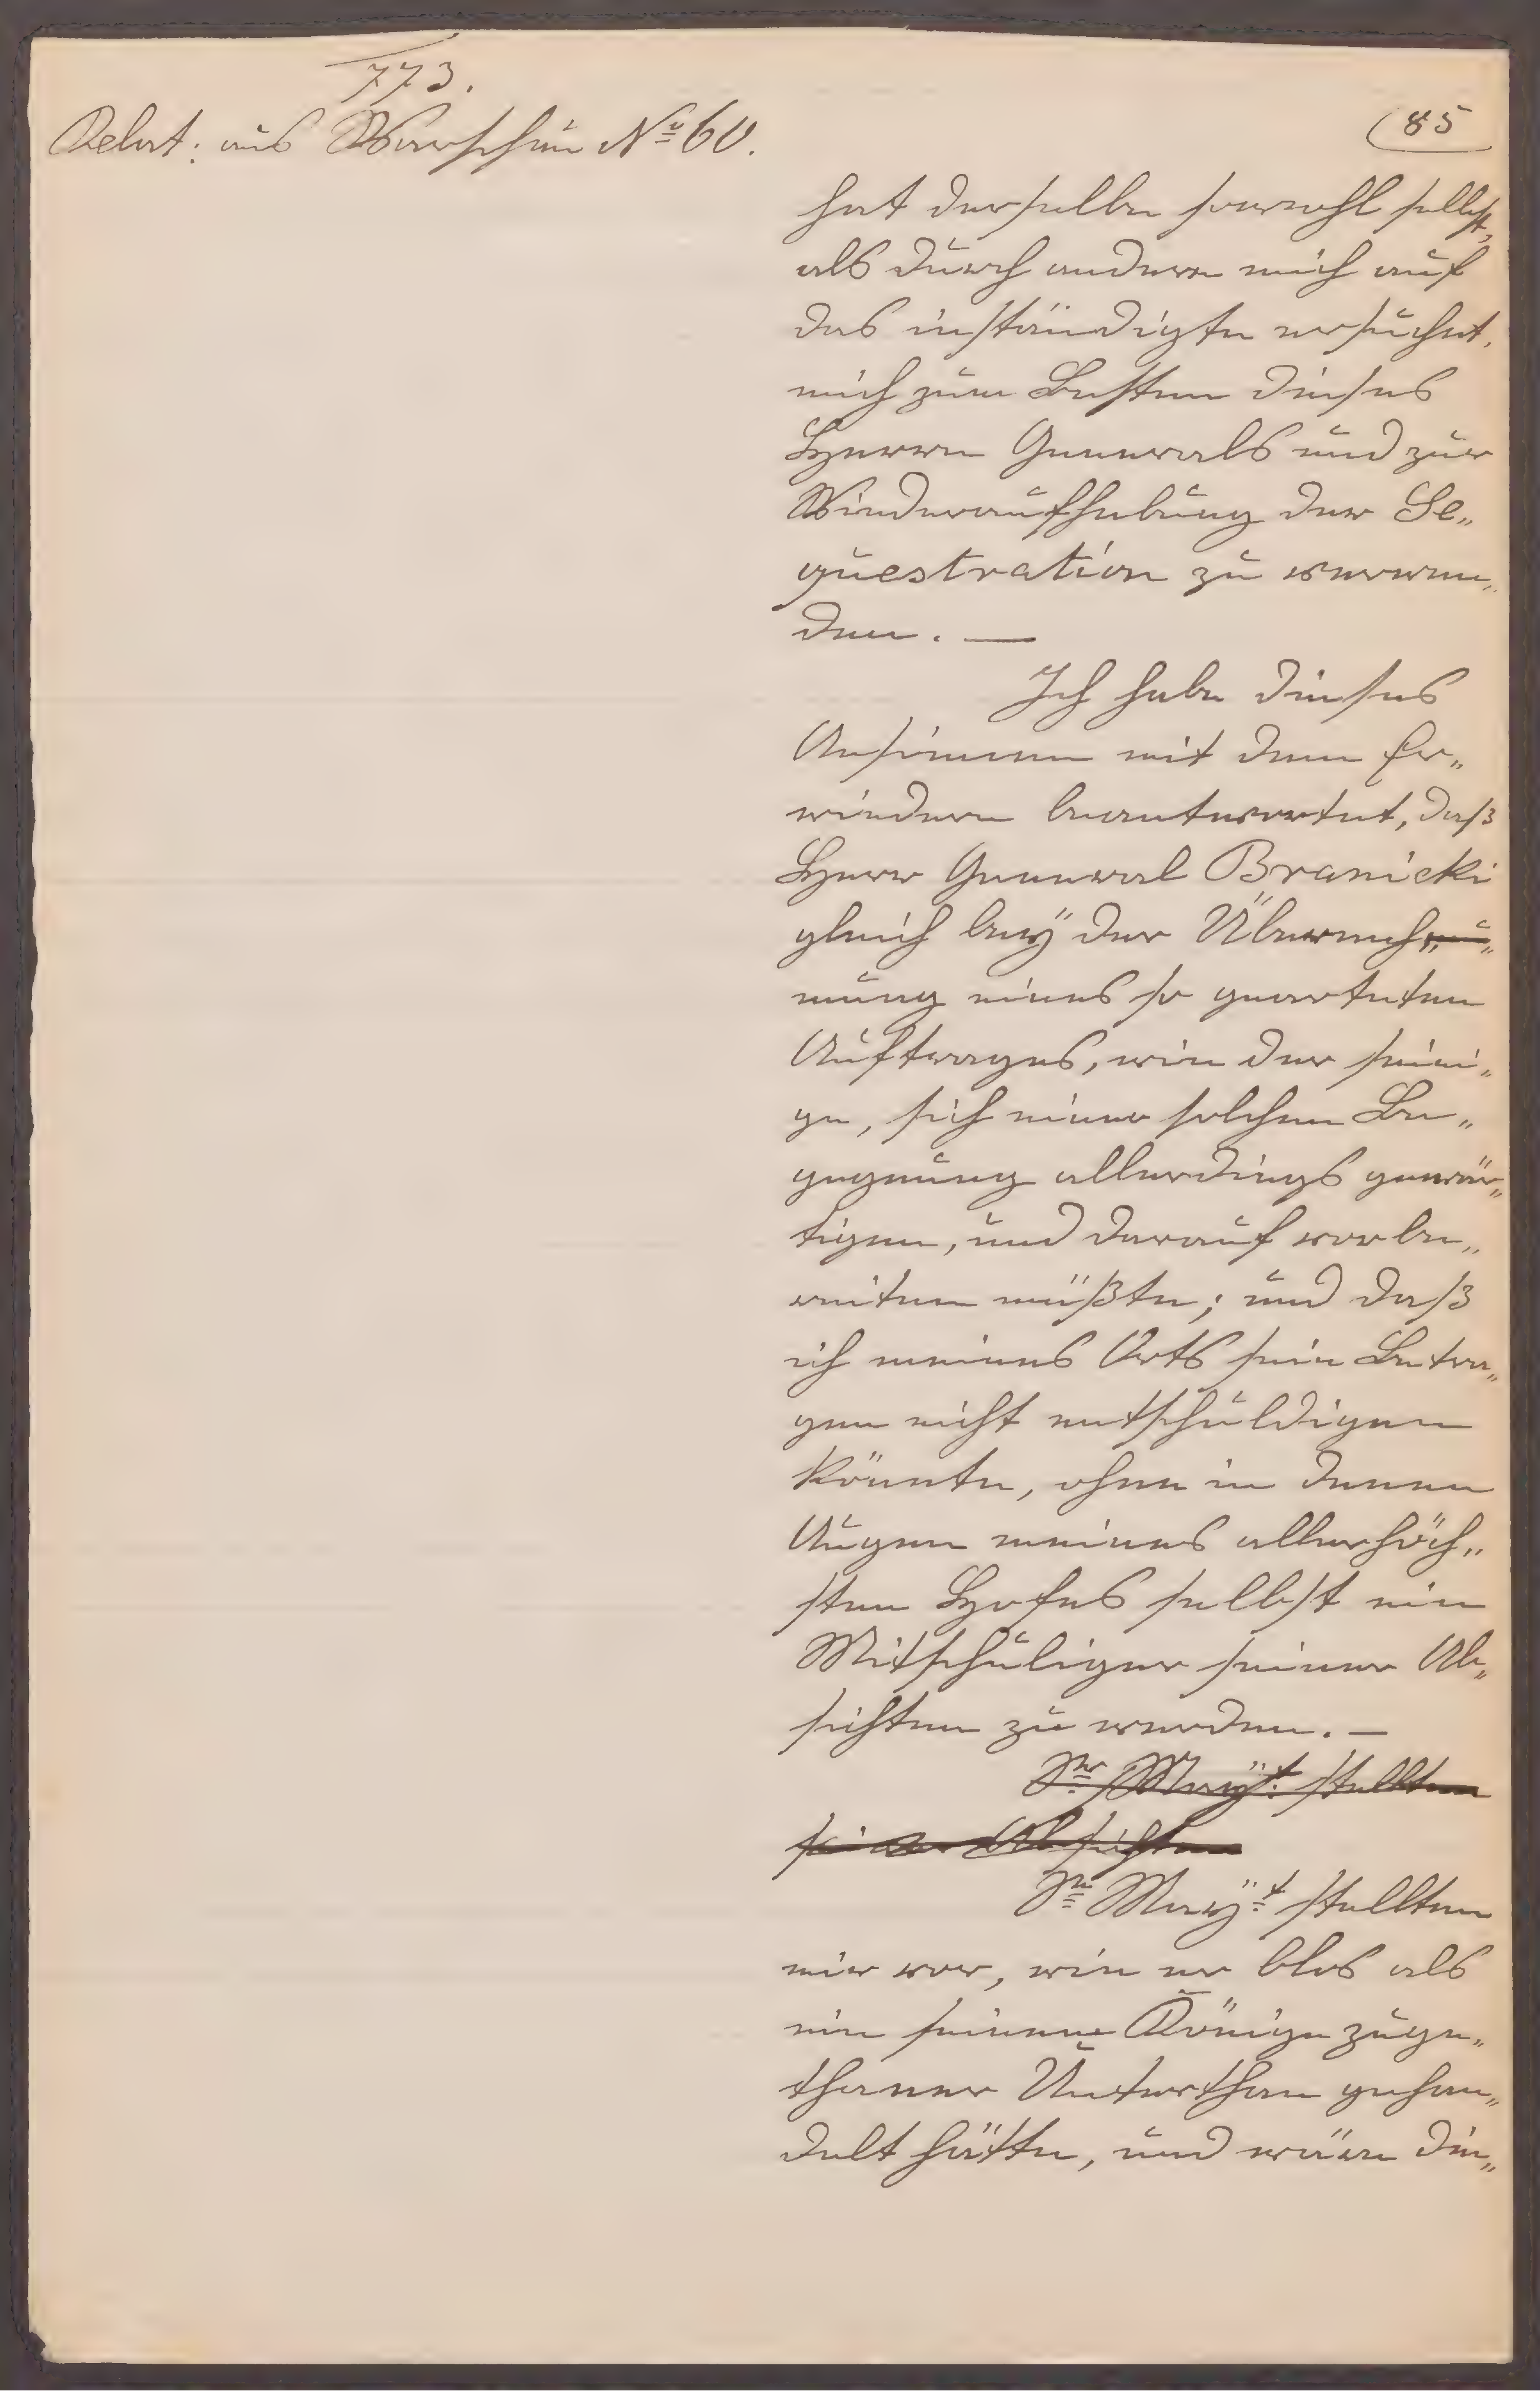 773.
Relat: aus Warschau No 60.
85
hat derselbe sowohl selbst,
als durch andere mich auf
das inständigste ersuchet,
mich zum Besten dieses
Herrn Generals und zur
Wiederaufhebung der Se„
questration zu verwen„
den. —
Ich habe dieses
Ansinnen mit dem Er„
wiedern beantwortet, daß
Herr General Branicki
gleich beÿ der Überneh„
mung eines so gearteten
Auftrages, wie der seini„
ge, sich einer solchen Be„
gegnung allerdings gewär„
tigen, und darauf vorbe„
reiten müßte; und daß
ich meines Orts sein Betra„
gen nicht entschuldigen
könnte, ohne in denen
Augen meines allerhöch„
sten Hofes selbst ein
Mitschuliger seiner Ab„
sichten zu werden. —
Sr Maÿt. stellten
seiner Absichten
Se Maÿt stellten
mir vor, wie er blos als
ein seinem Könige zuge„
thaner Unterthan gehan„
delt hätte, und wäre die„